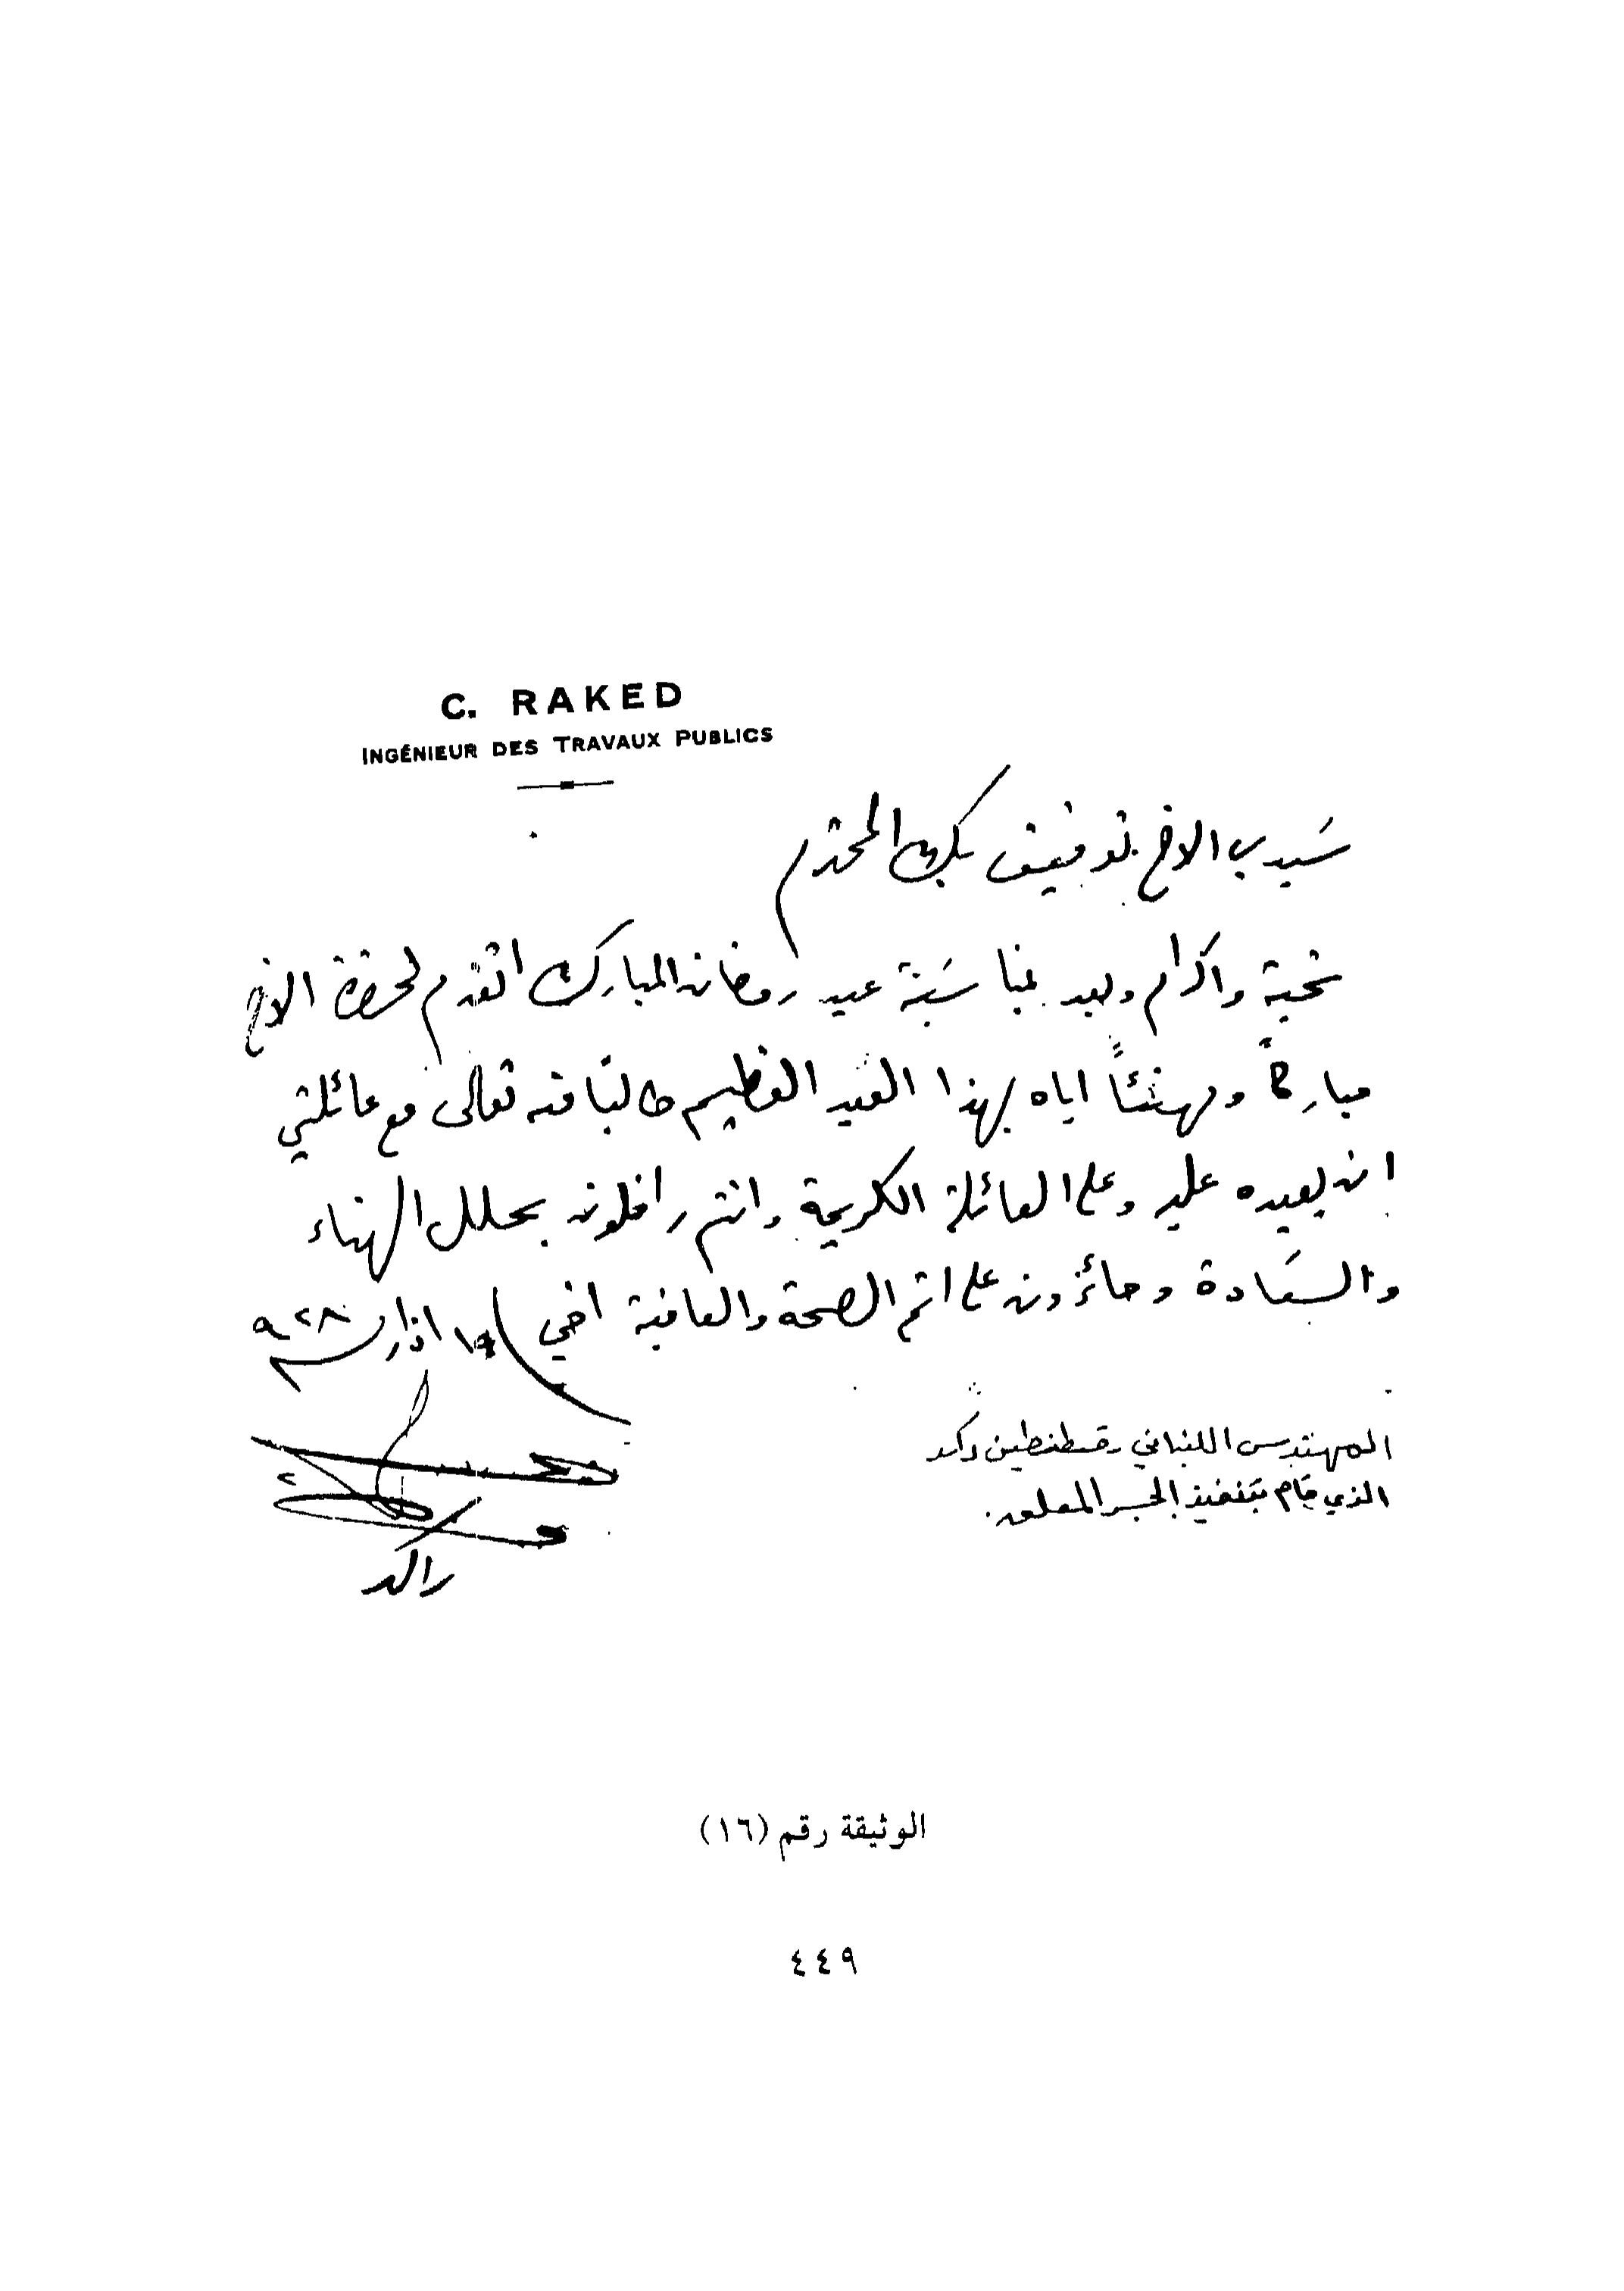 C. RAKED
INGÉNIEUR DES TRAVAUX PUBLICS
سيدي الاخ توفيق بك المحترم
تحية واكرام وبعد بمناسبة عيد رمضان المبارك اتقدم لحضرة الاخ
مباركاً ومهنئاً اياه بهذا العيد العظيم طالباً منه تعالى مع عائلتي
ان يعيده عليه وعلى العائلة الكريمة وانتم رافلون بحلل الهناء
والسعادة وحائزون على اتم الصحة والعافية اخي
اذار ٩٢٨
راكد
المهندس اللبناني قسطنطين راكد
الذي قام بتنفيذ الجسر المعلق.
الوثيقة رقم (١٦)
٤٤٩